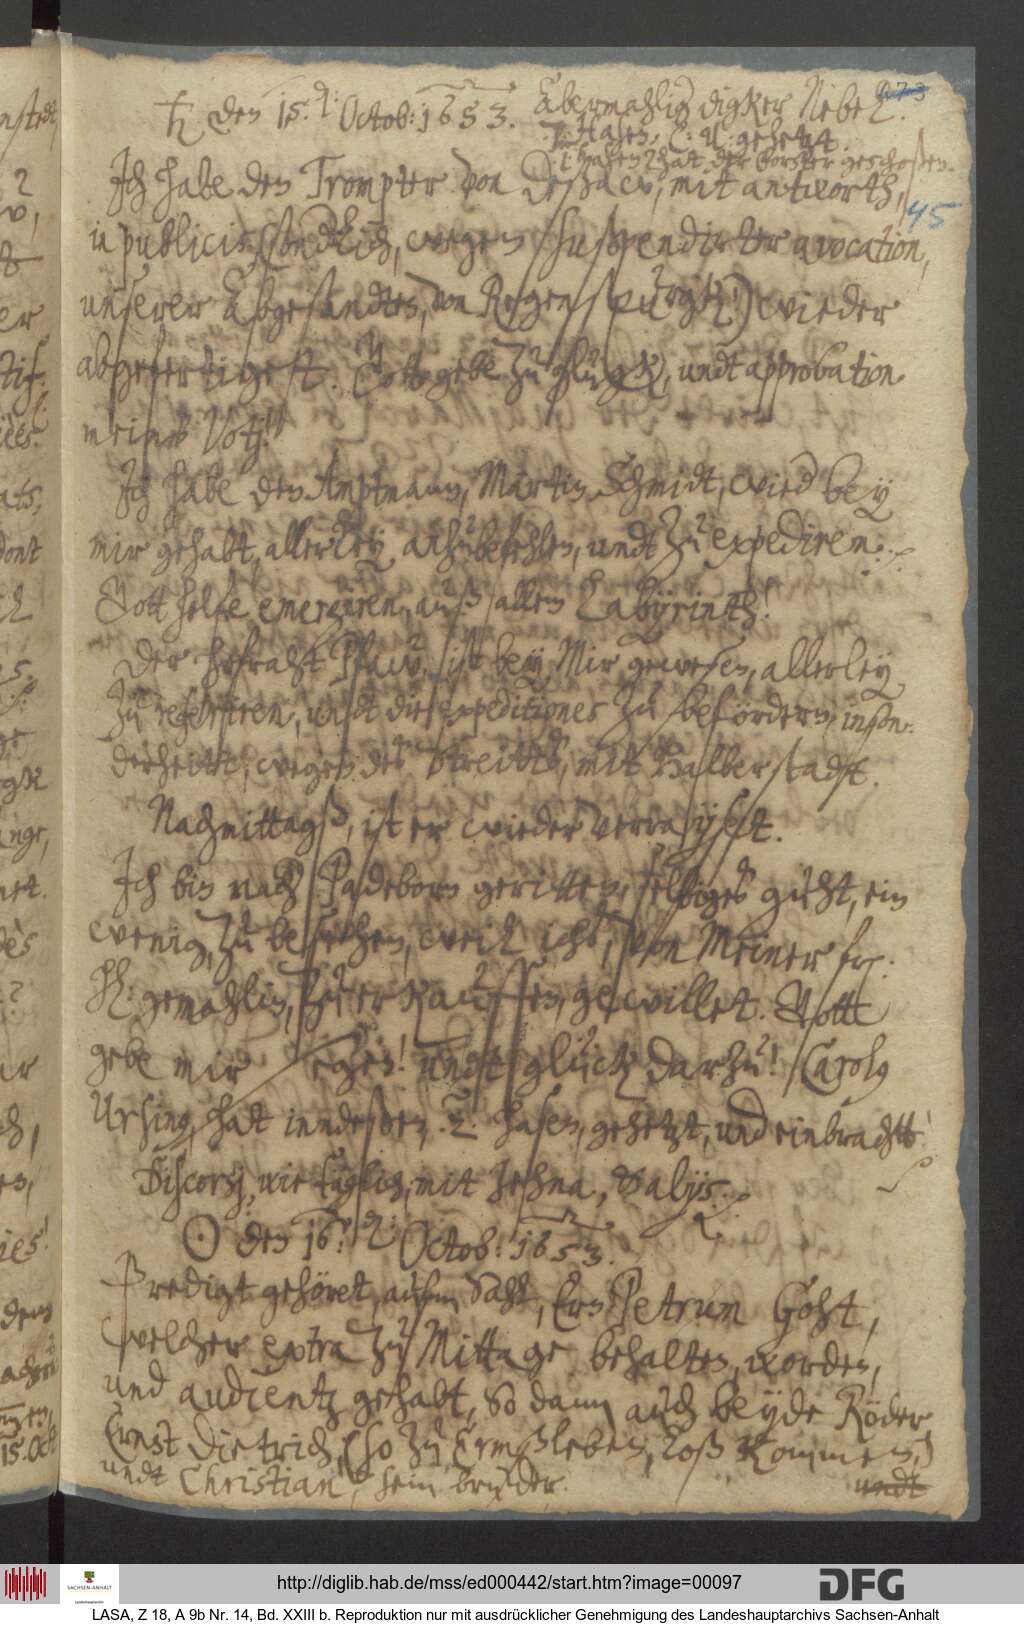 ♄ den 15.den: Octob: 1653. Abermahlig digker Nebel.
2 Hasen, C: U: gehetzt.
1 hasen hat der Forster geschoßen.
Ich habe den Trompter von Deßaw, mit antworth,
in publicis, (sondlich, wegen suspendirter avocation,
unserer Abgesandten, von Regenspurgk) wieder
abgefertiget. Gott gebe zu glügk, undt approbation
meines Voti!
Ich habe den Amptmann, Martin Schmidt, wied bey
mir gehabt, allerley anzubefehlen, undt zu expediren.
Gott helfe emergiren, auß allem Labyrinth!
Der hofraht Pfaw, ist bey Mir gewesen, allerley
zu referiren, undt die expeditiones zu befördern, inson-
derheitt, wegen des streitts, mit Halberstadt.
Nachmittagß, ist er wieder verrayset.
Ich bin nach Padeborn geritten, selbiges guht, ein
wenig, zu besehen, weil ichs, von Meiner fr:
hl: gemahlin, zu erkauffen, gewillet. Gott
gebe mir segen! undt glück darzu! Carolus
Ursinus, hat inndeßen, 2 hasen, gehetzt, und einbracht!
Discorsj, wie täglich, mit
☉ den 16. den: Octob: 1653.
Predigt gehöret, aufm Sahl, Ern Petrum Goht,
welcher extra zu Mittage behalten, worden,
und audientz gehabt, So dann auch beyde Röder
Ernst Dietrich, (so zu Ermßleben, loß kommen,)
undt Christian, sein bruder.
undt
45
http://diglib.hab.de/mss/ed000442/start.htm?image=00097
SACHSEN-ANHALT
Landeshauptarchiv
DFG
LASA, Z 18, A 9b Nr. 14, Bd. XXIII b. Reproduktion nur mit ausdrücklicher Genehmigung des Landeshauptarchivs Sachsen-Anhalt